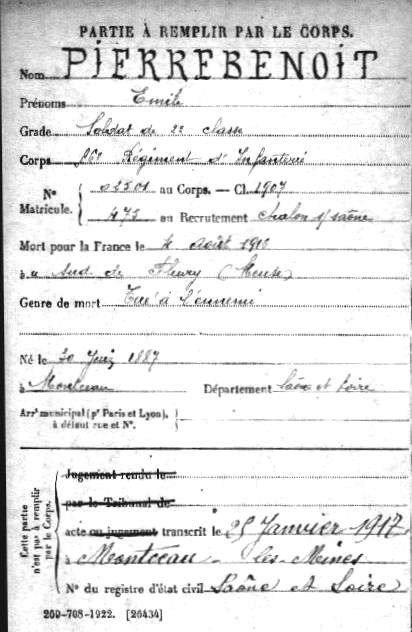 PARTIE À REMPLIR PAR LE CORPS.
Nom PIERREBENOIT
Prénoms Emile
Grade Soldat de 2e classe
Corps Régiment d'Infanterie
Nº Matricule. au Corps. — Cl. 1907
475 au Recrutement Chalon s/ saône
Mort pour la France le 4 Août 1916
à au Sud de Fleury (Meuse)
Genre de mort Tué à l'ennemi
Né le 30 Juin 1887
à Montceau Département Saône et Loire
Arrt municipal (pr Paris et Lyon),
à défaut rue et Nº.
Cette partie n'est pas à remplir par le Corps.
Jugement rendu le
par le Tribunal de
acte ou jugement transcrit le 25 Janvier 1917
à Montceau - les - Mines
Nº du registre d'état civil Saône et Loire
209-708-1922. [26434]